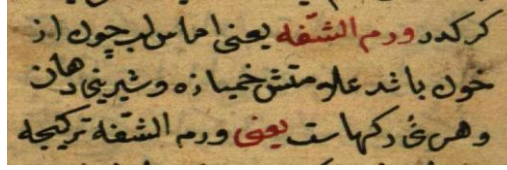 کر کدر ورم الشفه یعنی اماس لب چون از
خون باشد علامتش خمیازه و شیرینی دهان
و هر یعنی ورم الشفة